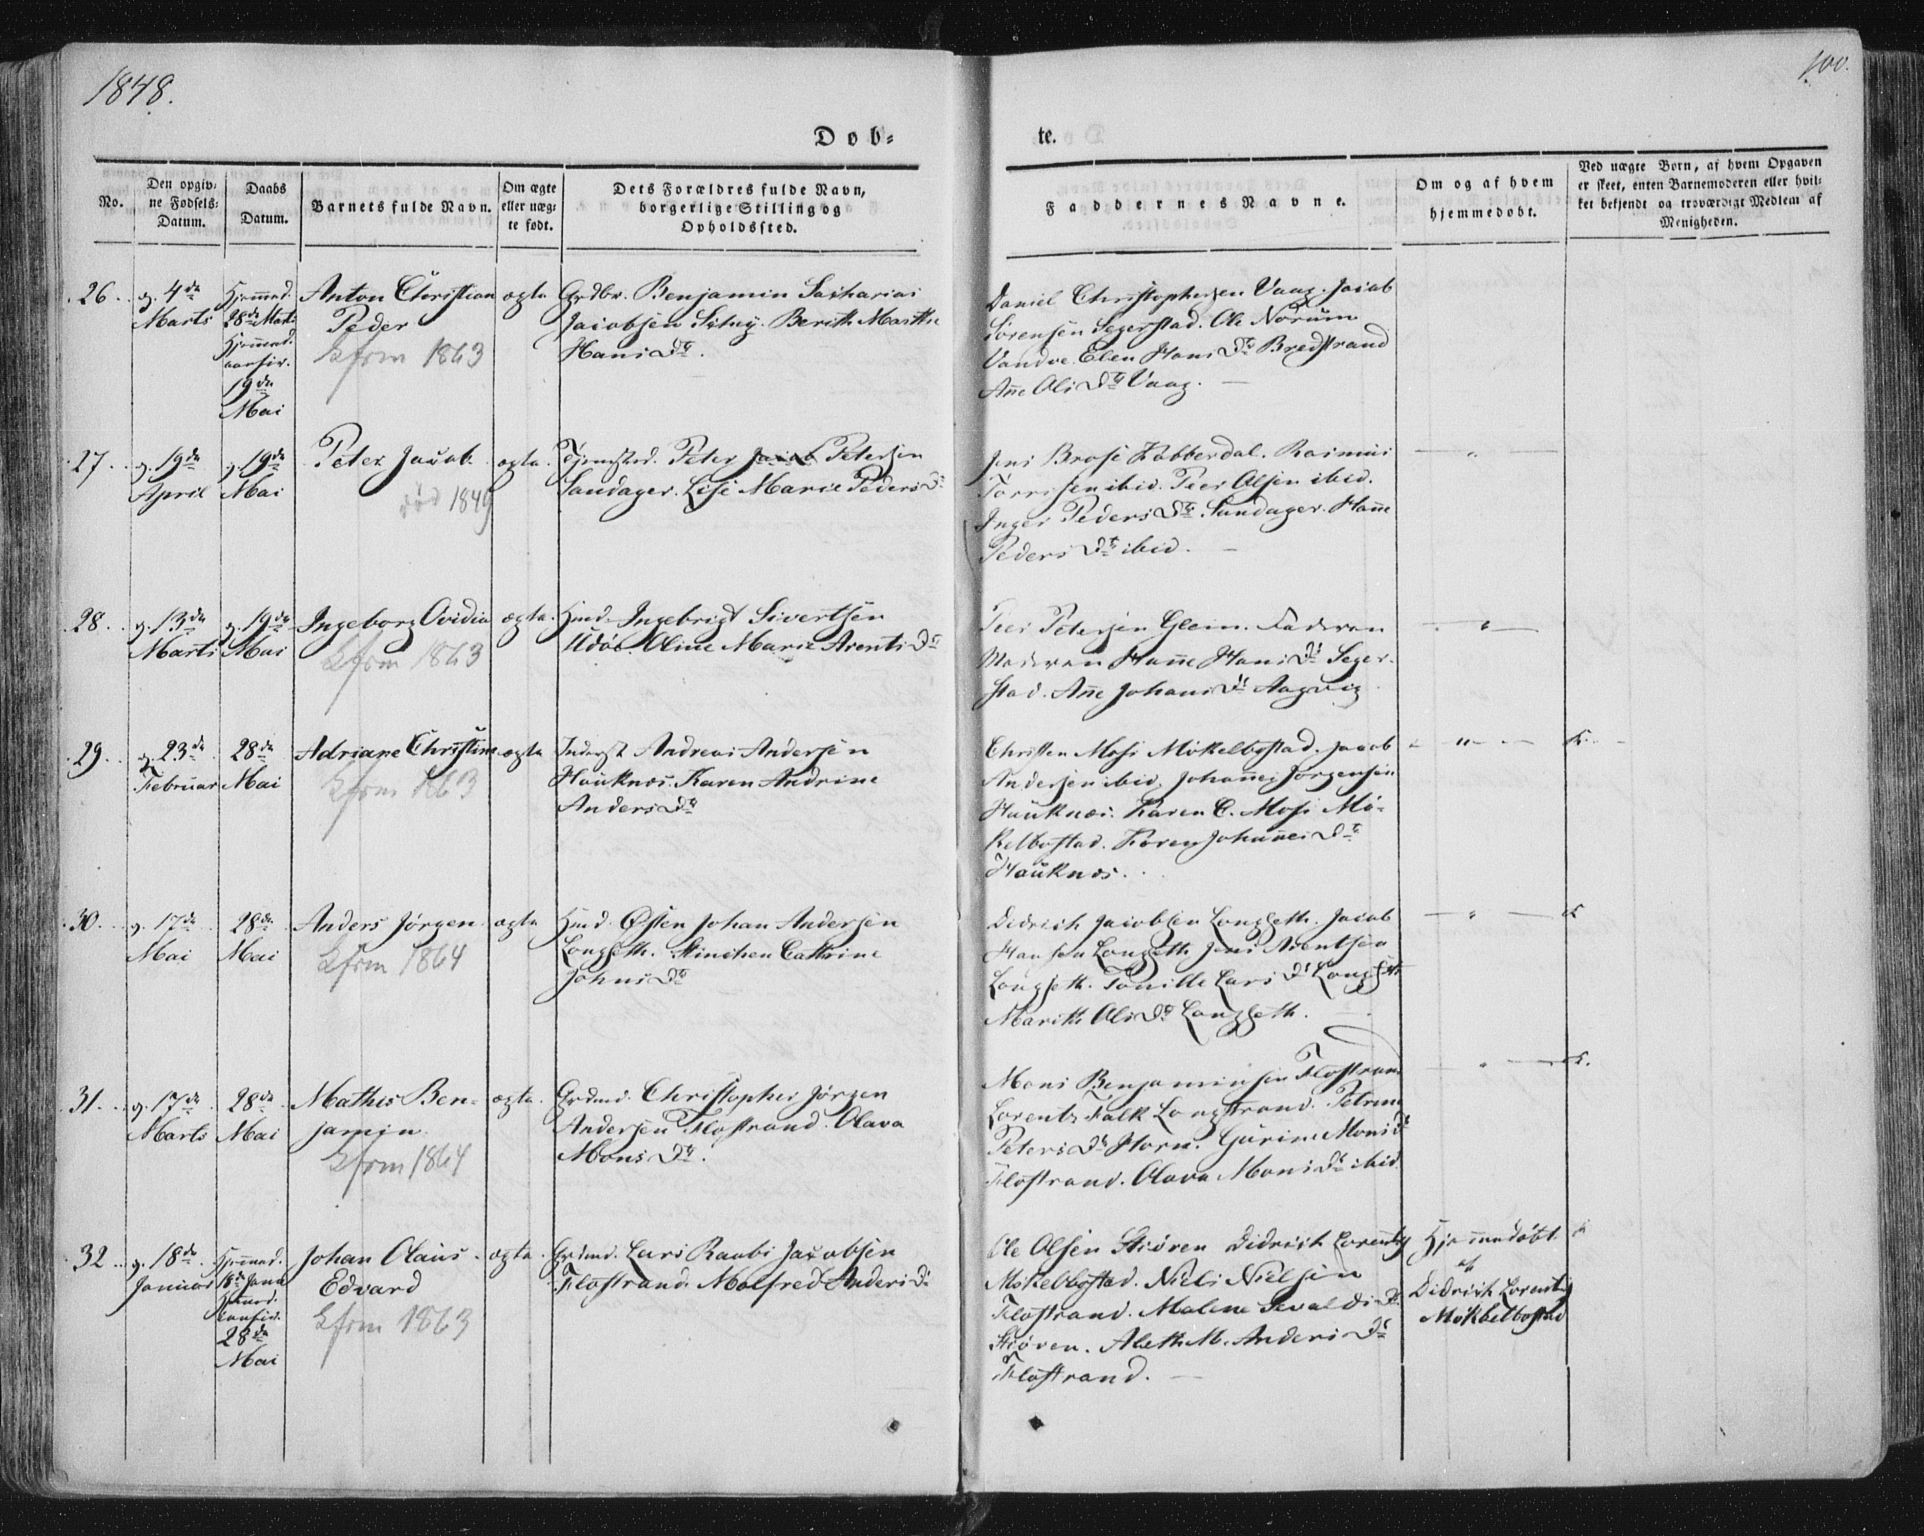 1848.
100.
Døb-
te.
No.
Den opgiv-
ne Fødsels-
Datum.
Daabs
Datum.
Barnets fulde Navn.
Om ægte
eller uæg-
te født.
Dets Forældres fulde Navn,
borgerlige Stilling og
Opholdssted.
Faddernes Navne.
Om og af hvem
hjemmedøbt.
Ved uægte Børn, af hvem Opgaven
er skeet, enten Barnemoderen eller hvil-
ket bekjendt og troværdigt Medlem af
Menigheden.
26. d. 4de
Marts
Hjemmed.
28de Marts
Hjemmed.
confir.
19de
Mai
Anton Christian
Peder
Kfrm 1863
ægte
Grdbr. Benjamin Sacharias
Jacobsen Berith Marthe
Hans Dtr.
Daniel Christophersen Vaag. Jacob
Sørensen Segerstad. Ole Norum
Vandve. Elen Hans Dtr Bredstrand
Ane Ols Dtr Vaag. —
27. d. 19de
April
d. 19de
Mai
Peter Jacob
død 1849
ægte.
Tjenestkd. Peter Jacob Petersen
Sandager. Lise Marie Peders Dtr
Jens Brose Kobberdal. Rasmus
Torrissen ibid. Peer Olsen ibid.
Inger Peders Dtr Sandager. Hanne
Peders Dt ibid. —
28. d. 13de
Marts
d. 19de
Mai
Ingeborg Ovidia
Kfrm 1863
ægte.
Hmd. Ingebrigt Sivertsen
Udøe. Oline Marie Arents Dtr
Peer Petersen Glein. Faderen
Moderen Hanne Hans Dt Seger-
stad. Ane Johans Dt Aagvig
29. d. 23de
Februar
28de
Mai
Adriane Christine
Kfrm 1863
ægte
Inderst Andreas Andersen
Hauknæs. Karen Andrine
Anders Dtr
Christen Mosi Møkelbostad. Jacob
Andersen ibid. Johannes Jørgensen
Hauknæs. Karen C. Mosi Mø-
kelbostad. Karen Johannes Dtr
Hauknæs.
30. d. 17de
Mai
28de
Mai
Anders Jørgen
Kfrm 1864
ægte
Hmd. Østen Johan Andersen
Langseth. Stinchen Cathrine
Johns Dtr
Didrich Jacobsen Langseth. Jacob
Hansen Langseth Jens Arentsen
Langseth. Tonille Lars Dt Langseth
Marith Ols Dtr Langseth.
31. d. 17de
Marts
28de
Mai
Mathis Ben-
jamin
Kfrm 1864
ægte.
Grdmd. Christopher Jørgen
Andersen Flostrand. Olava
Mons Dtr.
Mons Benjaminsen Flostrand
Lorents Falk Langstrand. Petrine
Peters Dt Horn. Gurine Mons Dt
Flostrand. Olava Mons Dt ibid
32. d. 18de
Januar
Hjemmed.
18de Janu
Hjemmed.
confir.
28de
Mai
Johan Olaus
Edvard
Kfrm 1863
ægte.
Grdmd. Lars Raabi Jacobsen
Flostrand. Malfred Anders Dt
Ole Olsen Stiøren Didrich Lorentz
Møkelbostad. Niels Nielsen
Flostrand. Malene Sevalds Dtr
Stiøren. Aleth M. Anders Dt
Flostrand. —
Hjemmedøbt
af
Didrich Lorentz
Møkkelbostad